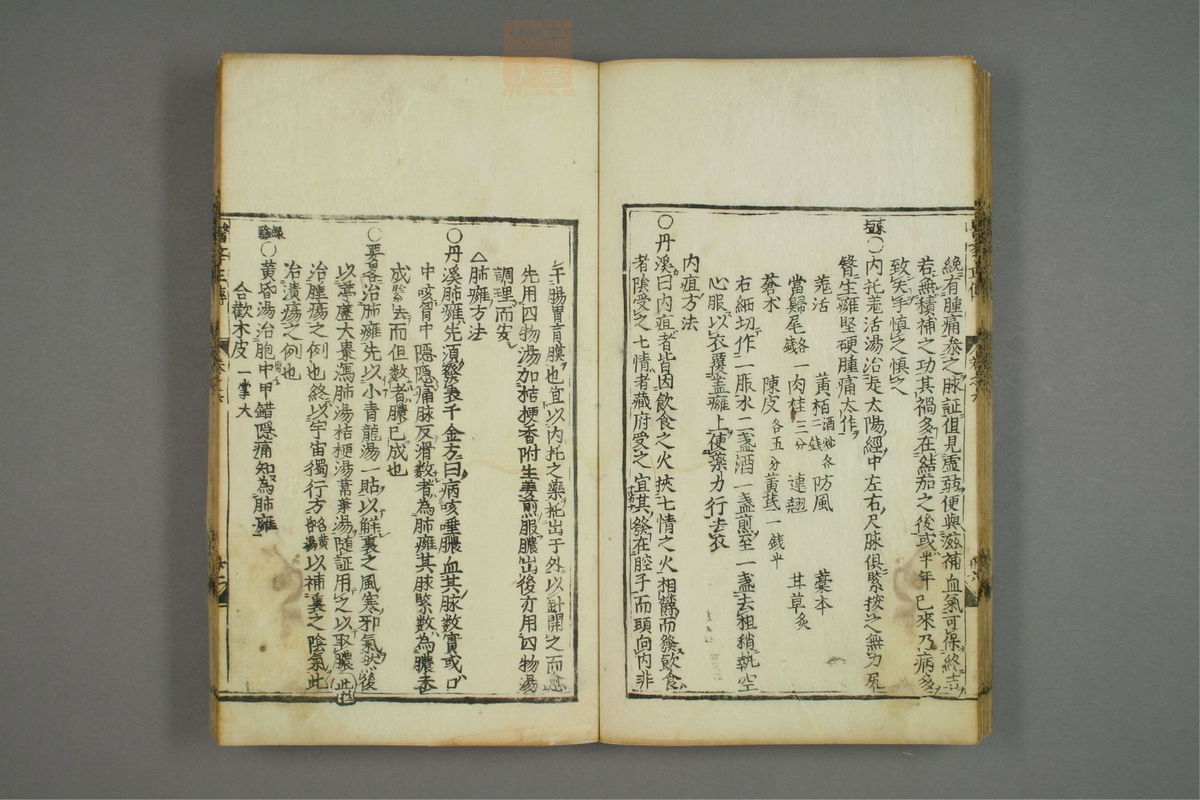 纔有腫痛參之脉証但見虛弱便與滋補血氣可保終吉
若無積補之功其禍多在結痂之後或半年已來乃病多
致失手慎之慎之
○內托羗活湯治足太陽經中左右尺脉俱緊按之無力尻
臀生癰堅硬腫痛大作
羗活 黄栢酒炒各二錢 防風 藁本
當歸尾各一錢 肉桂三分 連翹 甘草炙
蒼朮 陳皮各五分 黄芪一錢半
右細切作一服水二盞酒一盞煎至一盞去粗稍熱空
心服以衣覆盖癰上使藥力行去衣
內疽方法
○丹溪曰內疽者皆因飲食之火挾七情之火相鬱而發飲食
者陰受之七情者藏府受之宜其發在腔子而頭向內非
干腸胃肓膜也宜以內托之藥托出于外以針開之而愈
先用四物湯加桔梗香附生姜煎服膿出後方用四物湯
調理而安
△肺癰方法
○丹溪肺癰先須發表千金方曰病咳唾膿血其脉數實或口
中咳胷中隱隱痛脉反滑數者為肺癰其脉緊數為膿未
成緊去而但數者膿已成也
○要畧治肺癰先以小青龍湯一貼以觧裏之風寒邪氣然後
以葶藶大棗瀉肺湯桔梗湯葦莖湯随証用之以取膿此
治腫瘍之例也終以宇宙獨行方名黄昏湯以補裏之陰氣此
治潰瘍之例也
○黄昏湯治胞中甲錯隱痛知為肺癰
合歡木皮一掌大